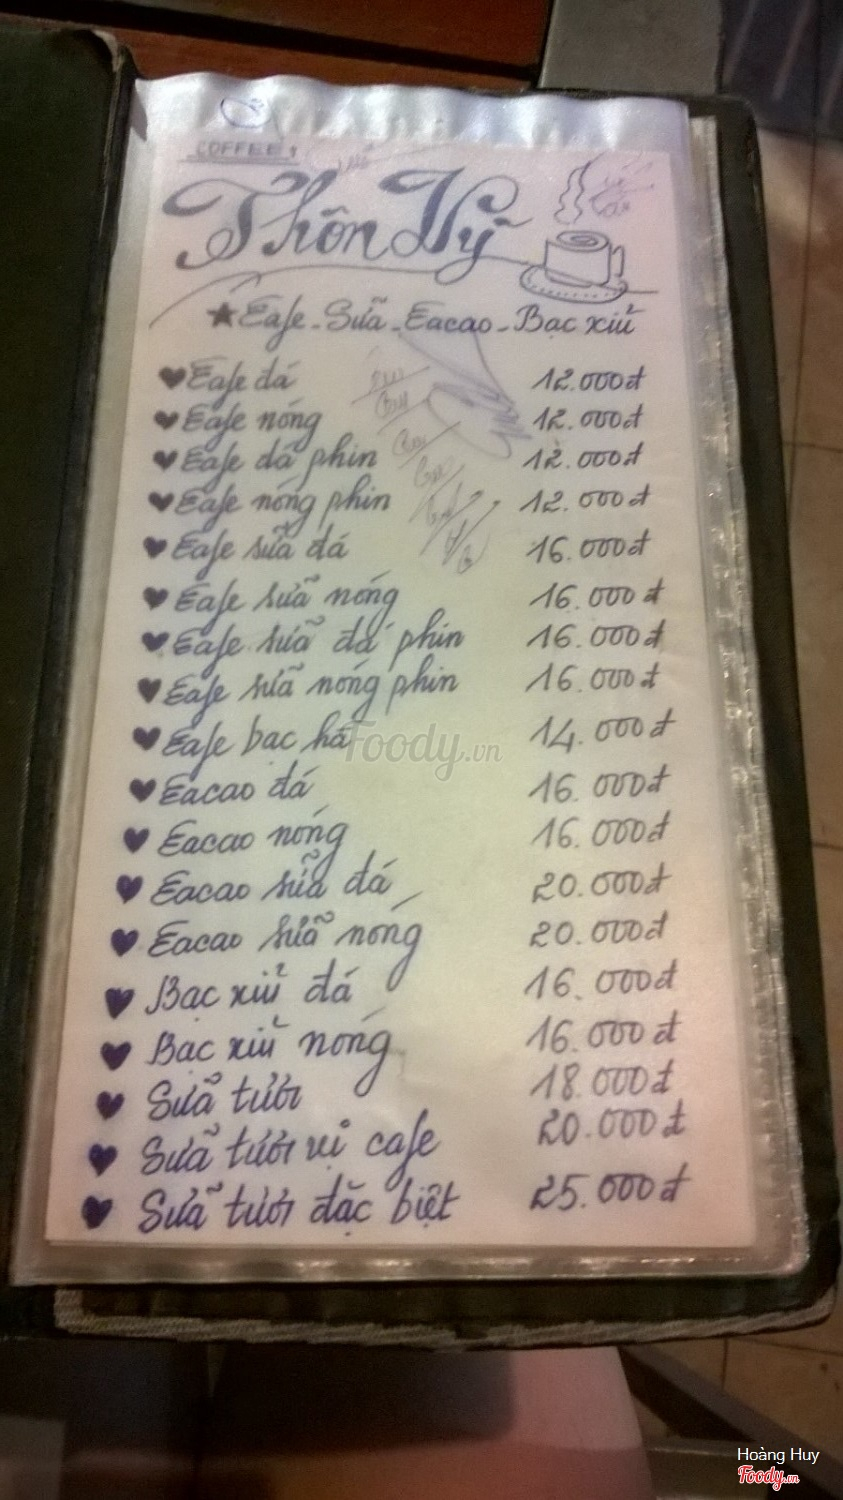 COFFEE:
Thôn Vỹ
★ Cafe - Sữa - Cacao - Bạc xỉu
♥ Cafe đá 12.000đ
♥ Cafe nóng 12.000đ
♥ Cafe đá phin 12.000đ
♥ Cafe nóng phin 12.000đ
♥ Cafe sữa đá 16.000đ
♥ Cafe sữa nóng 16.000đ
♥ Cafe sữa đá phin 16.000đ
♥ Cafe sữa nóng phin 16.000đ
♥ Cafe bạc hà 14.000đ
Foody.vn
♥ Cacao đá 16.000đ
♥ Cacao nóng 16.000đ
♥ Cacao sữa đá 20.000đ
♥ Cacao sữa nóng 20.000đ
♥ Bạc xỉu đá 16.000đ
♥ Bạc xỉu nóng 16.000đ
♥ Sữa tươi 18.000đ
♥ Sữa tươi vị cafe 20.000đ
♥ Sữa tươi đặc biệt 25.000đ
Hoàng Huy
Foody.vn